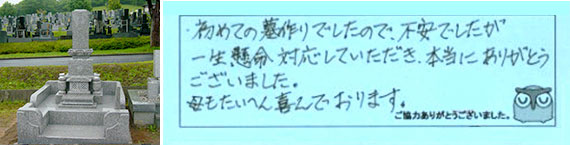 ・初めての墓作りでしたので、不安でしたが
一生懸命対応していただき、本当にありがとう
ございました。
母もたいへん喜んでおります。
ご協力ありがとうございました。